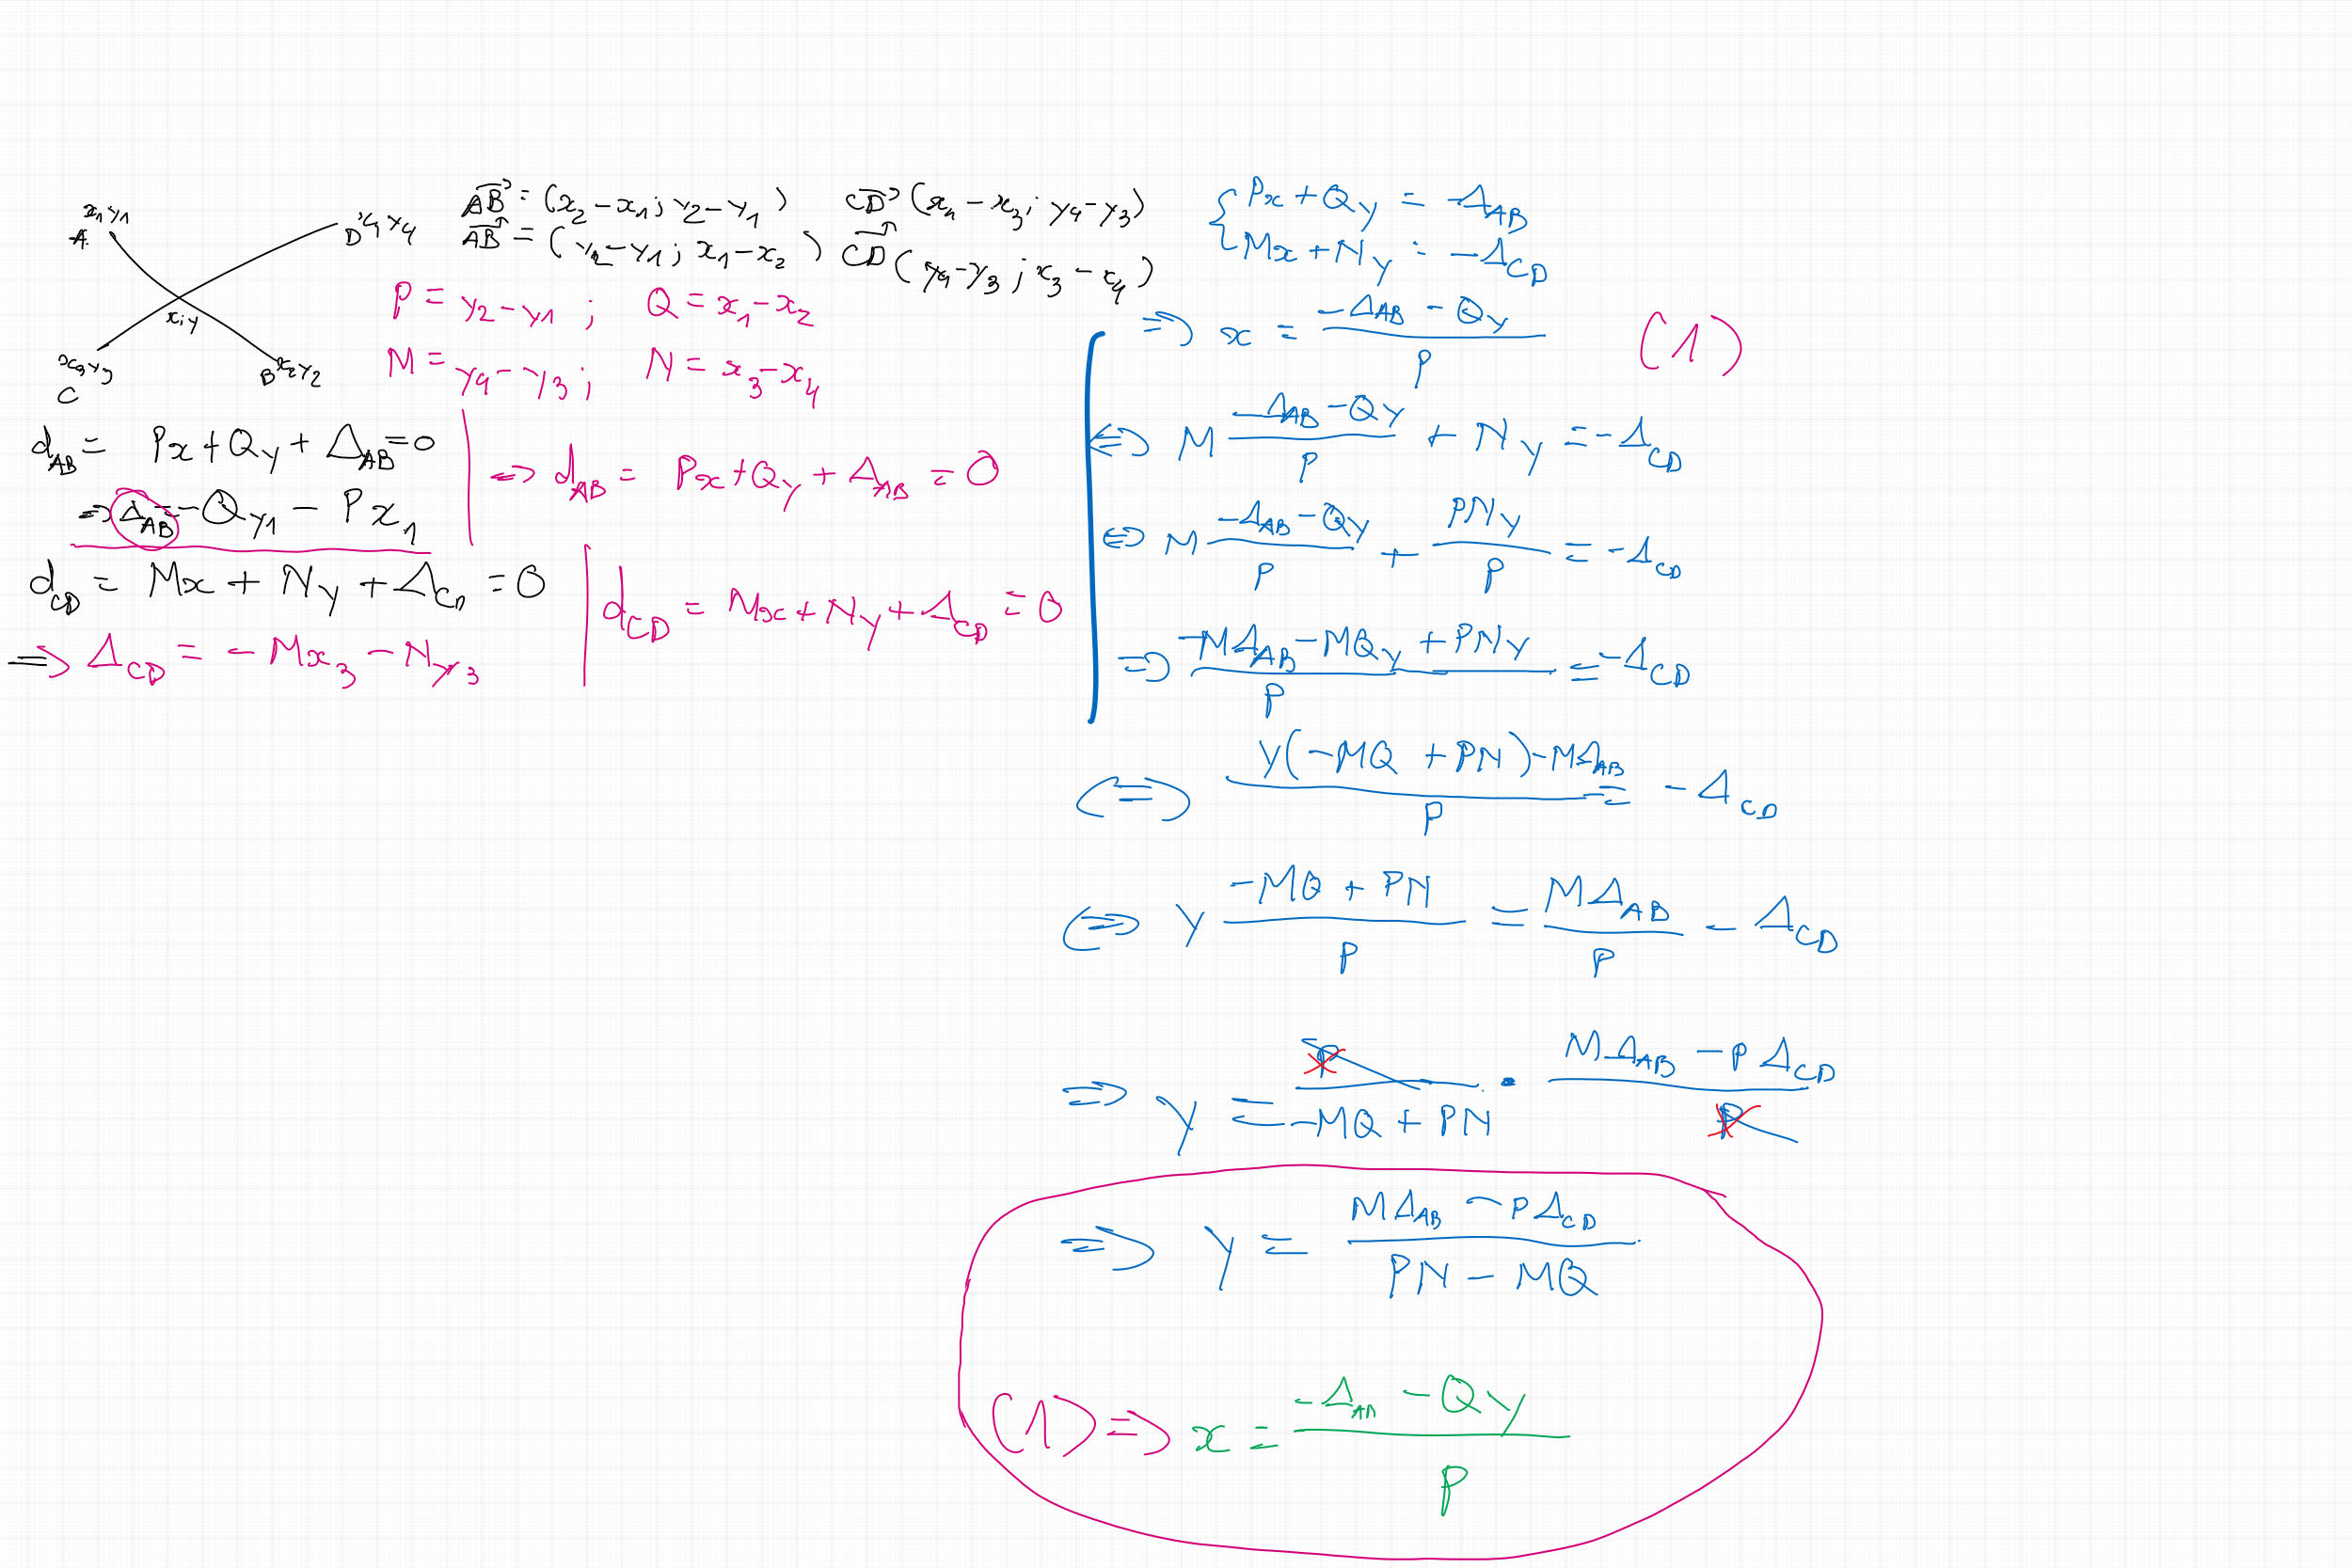 x₁ y₁
A
D x₄ y₄
x; y
x₃ y₃
C
B x₂ y₂
AB⃗ = (x₂ − x₁ ; y₂ − y₁) CD⃗ (x₄ − x₃ ; y₄ − y₃)
AB⃗ = (y₂ − y₁ ; x₁ − x₂) CD⃗ (y₄ − y₃ ; x₃ − x₄)
P = y₂ − y₁ ; Q = x₁ − x₂
M = y₄ − y₃ ; N = x₃ − x₄
d_AB = Px + Qy + Δ_AB = 0
⇒ Δ_AB = −Qy₁ − Px₁
⇒ d_AB = Px + Qy + Δ_AB = 0
d_CD = Mx + Ny + Δ_CD = 0
⇒ Δ_CD = −Mx₃ − Ny₃
d_CD = Mx + Ny + Δ_CD = 0
{ Px + Qy = −Δ_AB
{ Mx + Ny = −Δ_CD
⇒ x = (−Δ_AB − Qy) / P (1)
⇔ M (−Δ_AB − Qy) / P + Ny = −Δ_CD
⇔ M (−Δ_AB − Qy) / P + PNy / P = −Δ_CD
⇒ (−MΔ_AB − MQy + PNy) / P = −Δ_CD
⇔ (y(−MQ + PN) − MΔ_AB) / P = −Δ_CD
⇔ y (−MQ + PN) / P = MΔ_AB / P − Δ_CD
⇒ y = P / (−MQ + PN) · (MΔ_AB − PΔ_CD) / P
⇒ y = (MΔ_AB − PΔ_CD) / (PN − MQ)
(1) ⇒ x = (−Δ_AB − Qy) / P